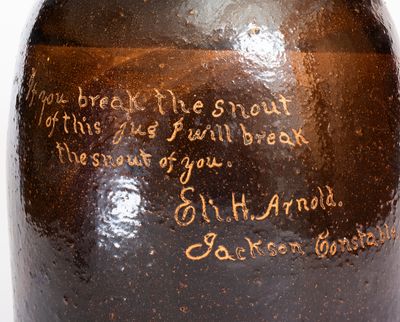 If you break the snout
of this jug I will break
the snout of you.
Eli. H. Arnold.
Jackson Constable